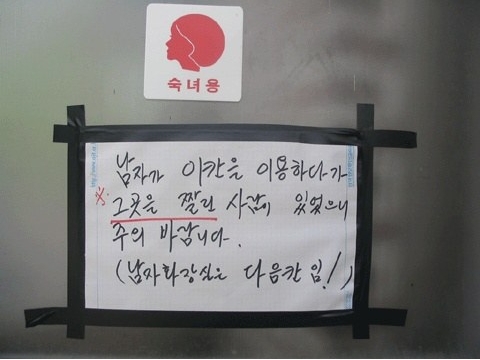 숙녀용
남자가 이칸을 이용하다가
※ 그곳을 찔린 사람이 있었으니
주의 바랍니다.
(남자화장실은 다음칸 임!)